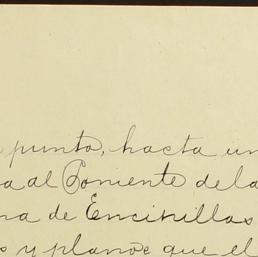 punto, hacta un
a al Poniente de la
na de Encinillas
s y planos que el